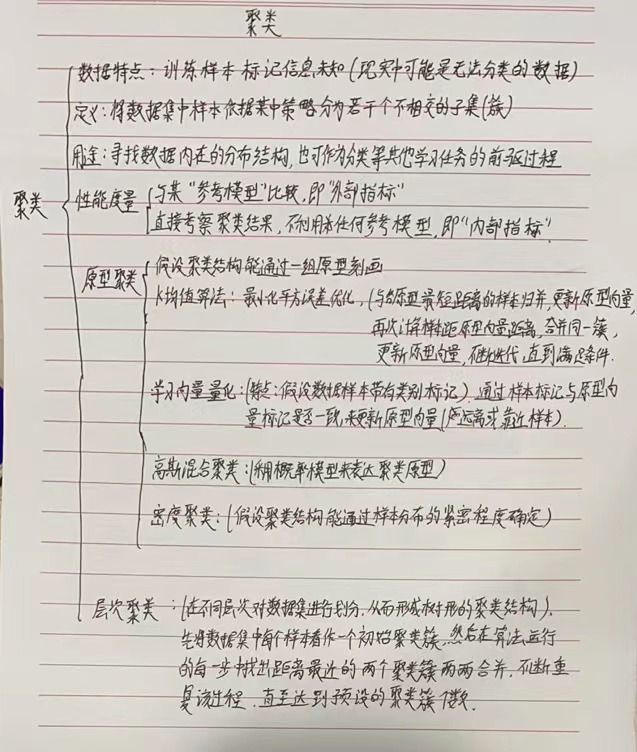 聚类
数据特点：训练样本标记信息未知(现实中可能是无法分类的数据)
定义：将数据集中样本依据某中策略分为若干个不相交的子集(簇)
用途：寻找数据内在的分布结构，也可作为分类等其他学习任务的前驱过程
聚类
性能度量
与某"参考模型"比较，即"外部指标"
直接考察聚类结果，不利用任何参考模型，即"内部指标"
原型聚类
假设聚类结构能通过一组原型刻画
k均值算法：最小化平方误差优化，(与各原型最短距离的样本归并，更新原型向量，
再次计算样本距原型向量距离，合并同一簇，
更新原型向量，不断迭代，直到满足条件.
学习向量量化：(特点：假设数据样本带有类别标记)，通过样本标记与原型向
量标记是否一致，来更新原型向量(远离或靠近样本).
高斯混合聚类：(利用概率模型来表达聚类原型)
密度聚类：(假设聚类结构能通过样本分布的紧密程度确定)
层次聚类：(在不同层次对数据集进行划分，从而形成树形的聚类结构).
先将数据集中每个样本看作一个初始聚类簇，然后在算法运行
的每一步中找出距离最近的两个聚类簇两两合并，不断重
复该过程，直至达到预设的聚类簇个数.